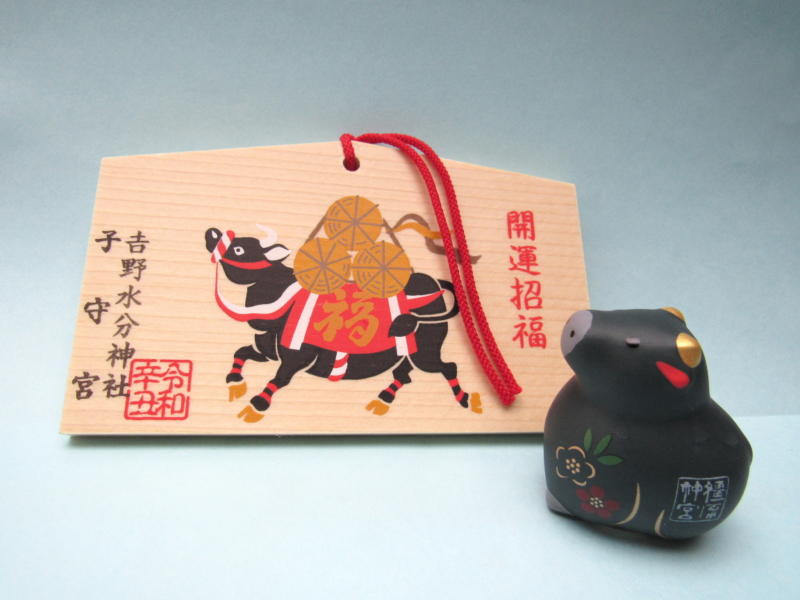 開運招福
福
吉野水分神社
子守宮
令和
辛丑
橿原
神宮